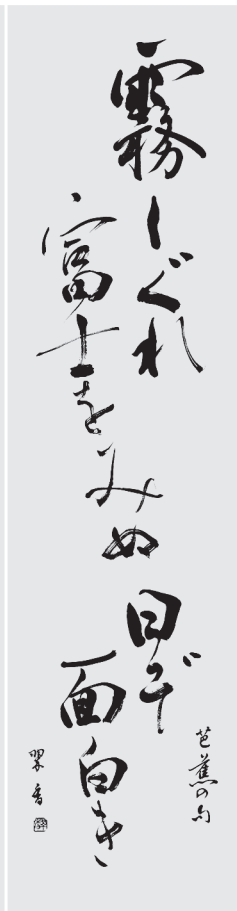 霧しぐれ
富士をみぬ
日ぞ
面白き
芭蕉の句
翠香